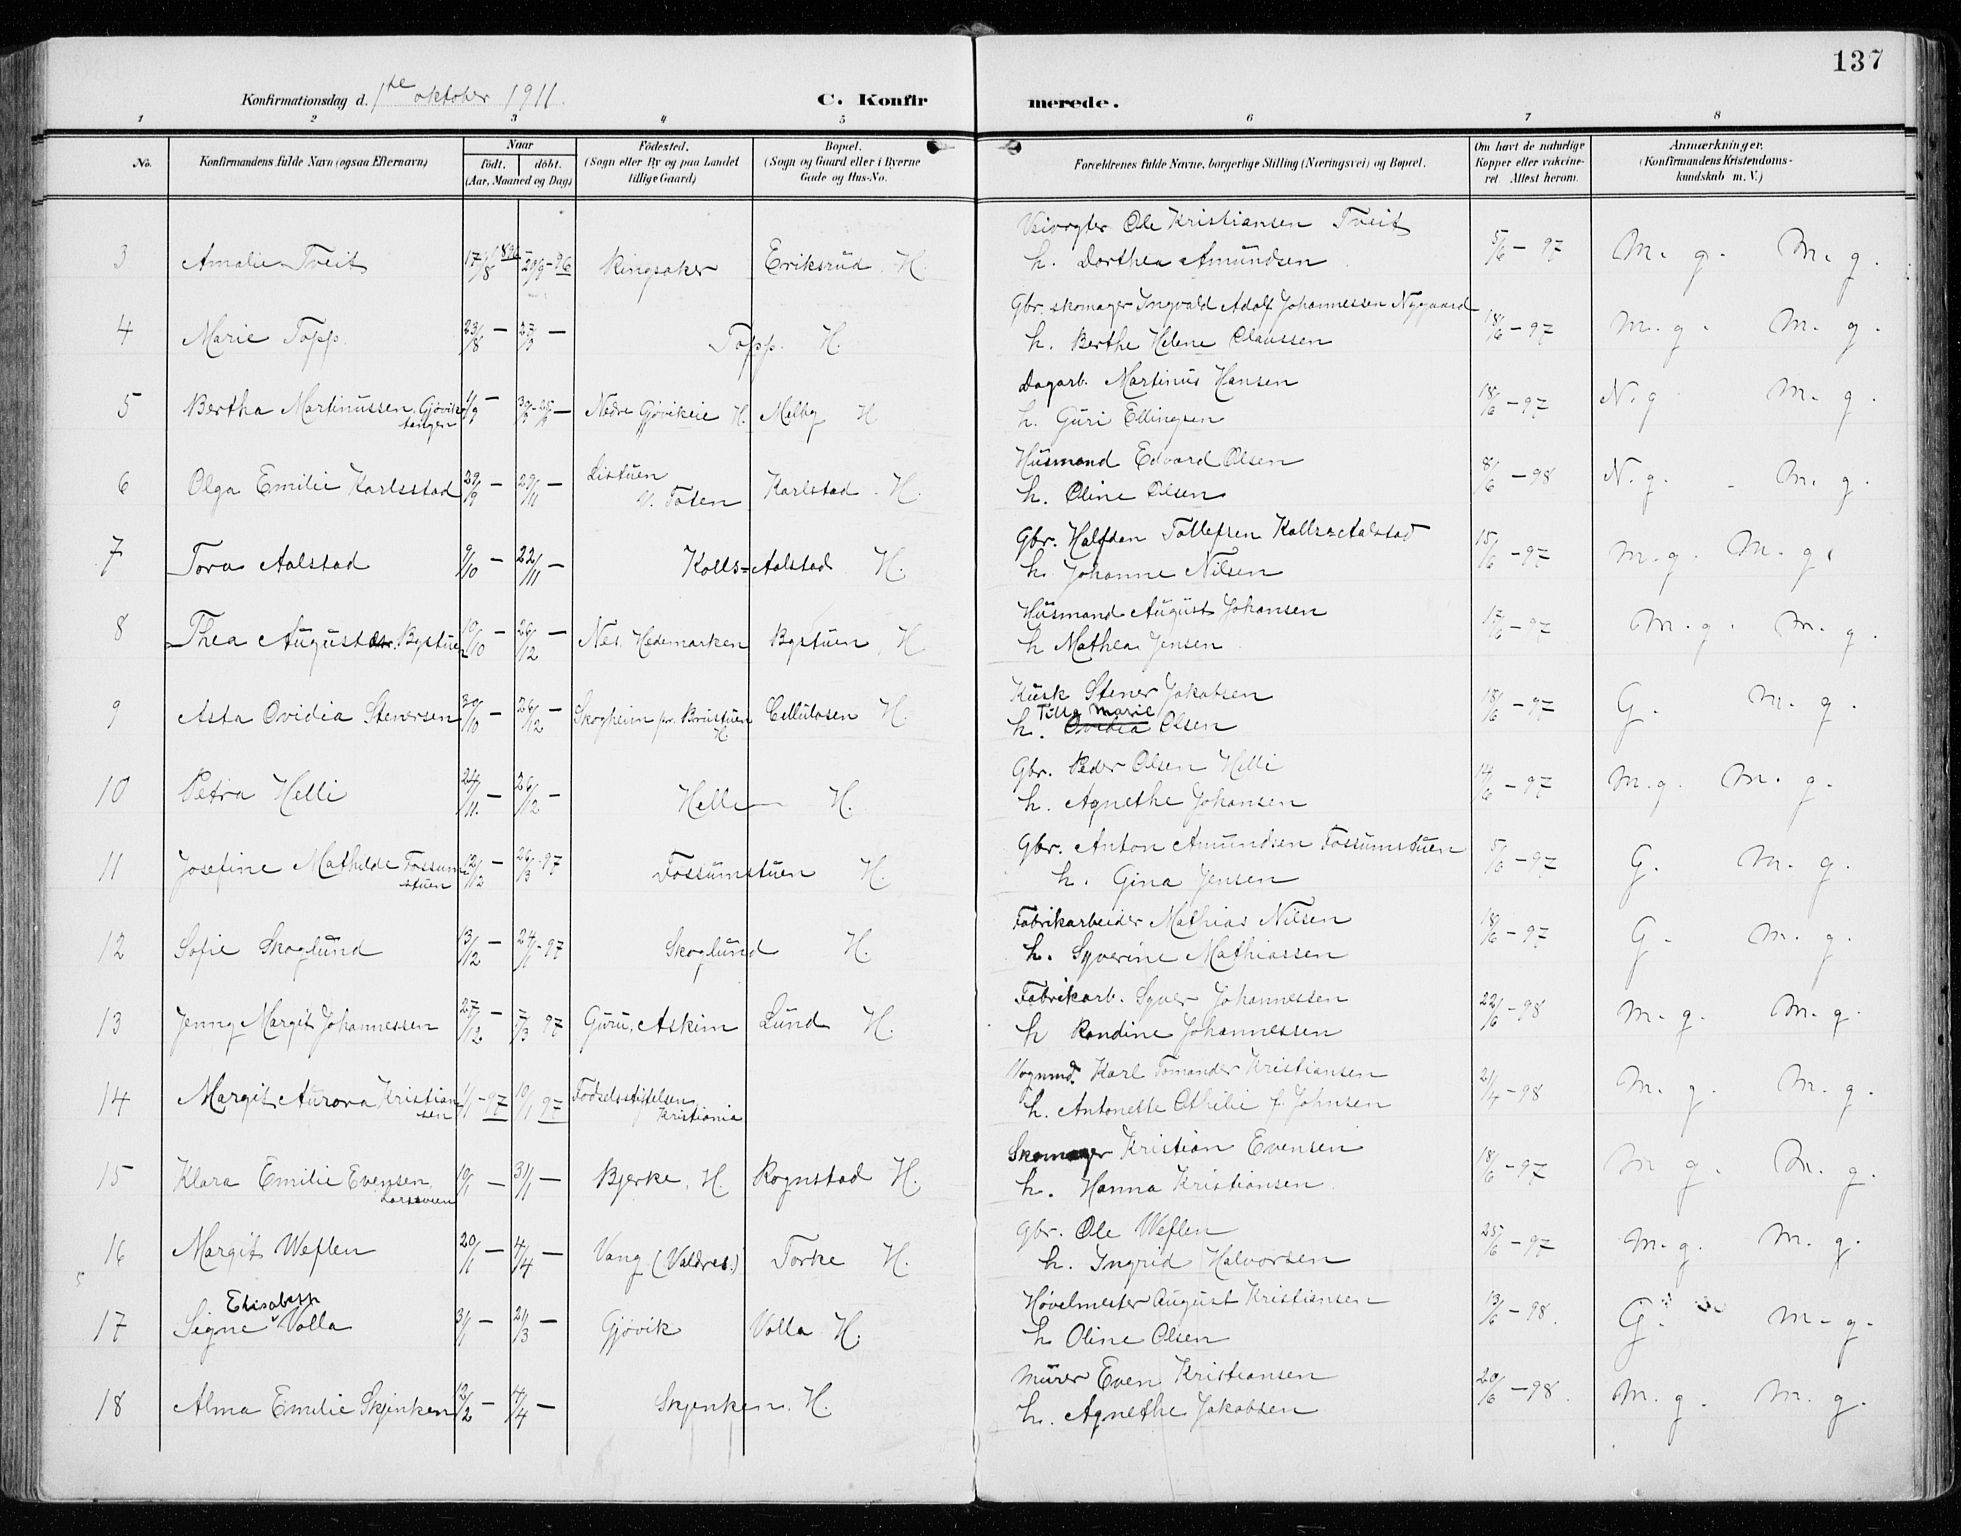 137
Konfirmationsdag d. 1ste oktober 1911. C. Konfirmerede.
1 2 3 4 5 6 7 8
No. Konfirmandens fulde Navn (ogsaa Efternavn) Naar født. døbt. (Aar, Maaned og Dag) Fødested. (Sogn eller By og paa Landet tillige Gaard) Bopæl. (Sogn og Gaard eller i Byerne Gade og Hus-No. Forældrenes fulde Navne, borgerlige Stilling (Næringsvei) og Bopæl. Om havt de naturlige Kopper eller vakcineret. Attest herom. Anmærkninger. (Konfirmandens Kristendomskundskab m. V.)
3 Amalie Tveit 17/8 1896 29/9-96 Ringsaker Eriksrud H. Ole Kristiansen Tveit
h. Dorthea Amundsen 5/6-97 M. g. M. g.
4 Marie Topp. 23/8 — Topp. H. Gbr. skomager Ingvald Adolf Johannessen Nygaard
h. Berthe Helene Olaussen 18/6-97 M. g. M. g.
5 Bertha Martinussen, Gjøviktangen /9 — Nedre Gjøvikeie H. Melby H Dagarb. Martinus Hansen
h. Guri Ellingsen 18/6-97 N. g M. g.
6 Olga Emilie Karlsstad 29/9 — 29/11 — Listuen V. Toten Karlstad H. Husmand Edvard Olsen
h. Oline Olsen 8/6-98 N. g. M. g.
7 Tora Aalstad 9/10 — 22/11 — Kolls-Aalstad H. Gbr. Halfdan Tollefsen Kolls-Aalstad
h. Johanne Nilsen 15/6-97 M. g. M. g.
8 Thea August Bystuen 10/10 — 26/12 — Nes, Hedemarken Bystuen, H Husmand August Johansen
h Mathea Jensen 17/6-97 M. g. M. g.
9 Asta Ovidia Stenersen 30/10 — 26/12 — Skogheim pr. Brustuen H. Cellulosen H. Kusk Stener Jakobsen
h. Tilla Marie Ovidia Olsen 18/6-97 G. M. g.
10 Petra Helli 24/11. — 26/12 — Helli H. Gbr. Peder Olsen Helli
h. Agnethe Johansen 14/6-97 M. g. M. g.
11 Josefine Mathilde Fossumstuen 12/12 — 26/3-97 Fossumstuen H. Gbr. Anton Amundsen Fossumstuen
h. Gina Jensen 5/6-97 G. M. g.
12 Sofie Skoglund 13/12 — 24/1-97 Skoglund H. Fabrikarbeider Mathias Nilsen
h. Syverine Mathiassen 18/6-97 G. M. g.
13 Jenny Margit Johannessen 27/12 — 7/3 97 Guru, Askim Lund H. Fabrikarb. Syver Johannessen
h Randine Johannessen 22/6-98 M. g. M. g.
14 Margit Aurora Kristiansen 1/1-97 10/1 97 Fødselsstiftelsen Kristiania Vognmd. Karl Tomander Kristiansen
h. Antonette Othilie f. Johnsen 2/4-98 M. g. M. g.
15 Klara Emilie Evensen, Larsveen 10/1 — 31/1 — Bjerke, H. Rognstad H. Skomager Kristian Evensen
h. Hanna Kristiansen 18/6-97 M g. M. g.
16 Margit Weflen 20/1 — 4/4 — Vang (Valdres.) Torke H. Gbr. Ole Weflen
h. Ingrid Halvorsen 25/6-97 M. g. M. g.
17 Signe Elisabeth Volla 31/1 — 21/3 — Gjøvik Volla H. Høvelmester August Kristiansen
h Oline Olsen 13/6-98. G. M. g.
18 Alma Emilie Skjenken 12/2 — 4/4 — Skjenken. H. Murer Even Kristiansen
h. Agnethe Jakobsen 20/6-98. M. g. M. g.